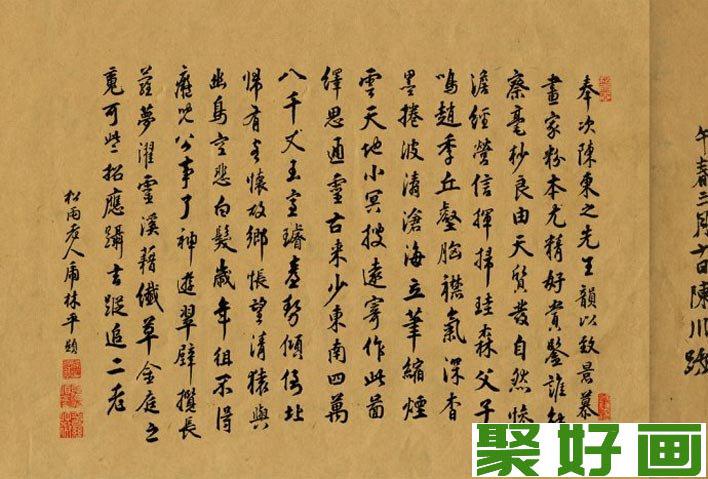 午春三月十日陳川
奉次陳東之先生韻以致景慕
畫家粉本尤精好賞鑒誰
察毫杪良由天質發自然慘
澹經營信揮掃珪森父子
鳴趙季丘壑胸襟氣深杳
墨捲波濤滄海立筆縮煙
雲天地小冥搜遠寄作此圖
繹思通靈古来少東南四萬
八千丈玉室璿臺勢傾倚
帰有言懷故鄉悵望清猿與
幽鳥空悲白髮歲年徂不得
癡児公事了神遊翠壁攬長
蘿夢濯靈溪藉纖草金庭之
竟可些招應躡吉蹤追二老
松雨老人甫林平題
聚好画